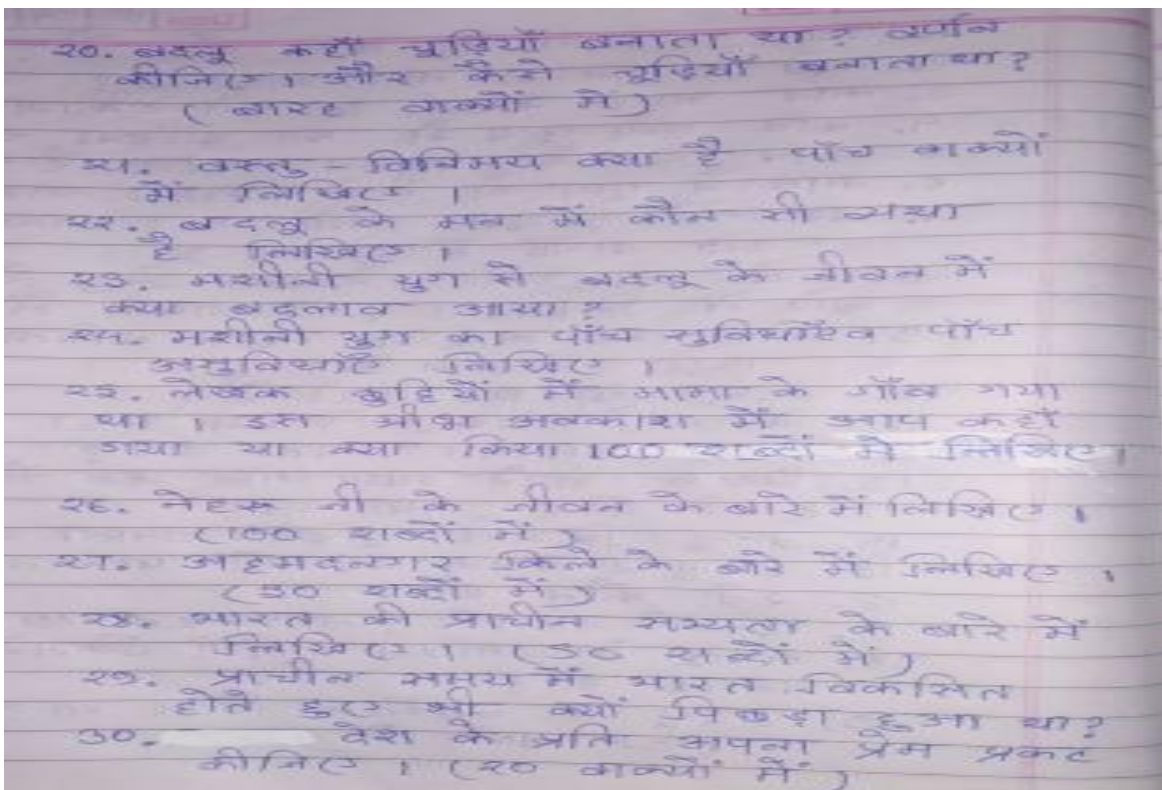 २०. बदलु कहाँ चुडियाँ बनाता था? वर्णन
कीजिए। और कैसे चुडियाँ बनाता था?
(बारह वाक्यों में)
२१. वस्तु-विनिमय क्या है पाँच वाक्यों
में लिखिए।
२२. बदलु के मन में कौन सी व्यथा
है लिखिए।
२३. मशीनी युग से बदलु के जीवन में
क्या बदलाव आया?
२४. मशीनी युग का पाँच सुविधाएँव पाँच
असुविधाएँ लिखिए।
२५. लेखक छुट्टियों में मामा के गाँव गया
था। इस ग्रीष्म अवकाश में आप कहाँ
गया या क्या किया 100 शब्दों में लिखिए।
२६. नेहरू जी के जीवन के बारे में लिखिए।
(100 शब्दों में)
२७. अहमदनगर किले के बारे में लिखिए।
(50 शब्दों में)
२८. भारत की प्राचीन सभ्यता के बारे में
लिखिए। (50 शब्दों में)
२९. प्राचीन समय में भारत विकसित
होते हुए भी क्यों पिछड़ा हुआ था?
30. देश के प्रति अपना प्रेम प्रकट
कीजिए। (२० वाक्यों में)